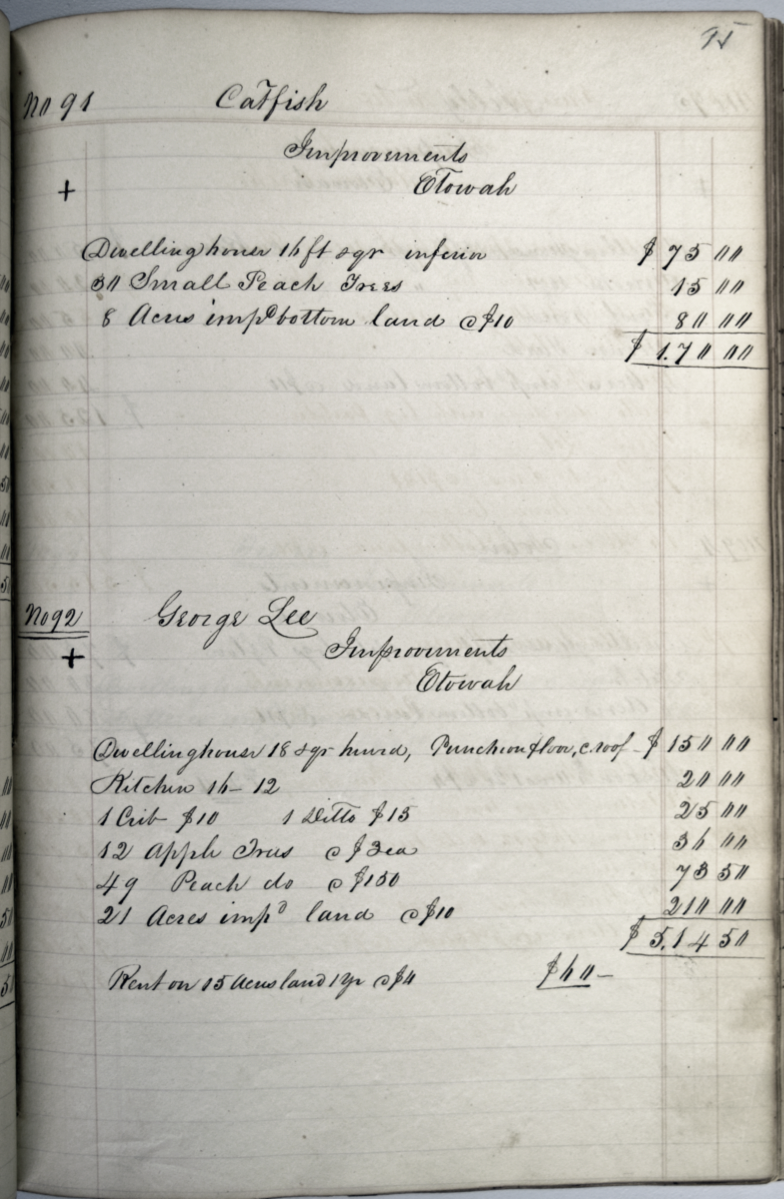 95
No 91 Catfish
Improvements
+ Etowah
Dwelling house 16 ft sqr inferior $ 75 00
30 Small Peach Trees 15 00
8 Acres impd bottom land @ $10 80 00
$ 1.70 00
No 92 George Lee
Improvements
+ Etowah
Dwelling house 18 sqr hewed, Puncheon floor, c. roof - $ 150 00
Kitchen 16 - 12 20 00
1 Crib $10 1 Ditto $15 25 00
12 Apple Trees @ $3 ea 36 00
49 Peach do @ $1 50 73 50
21 Acres impd land @ $10 210 00
$ 5.14 50
Rent on 15 Acres land 1 yr @ $4 $60 -